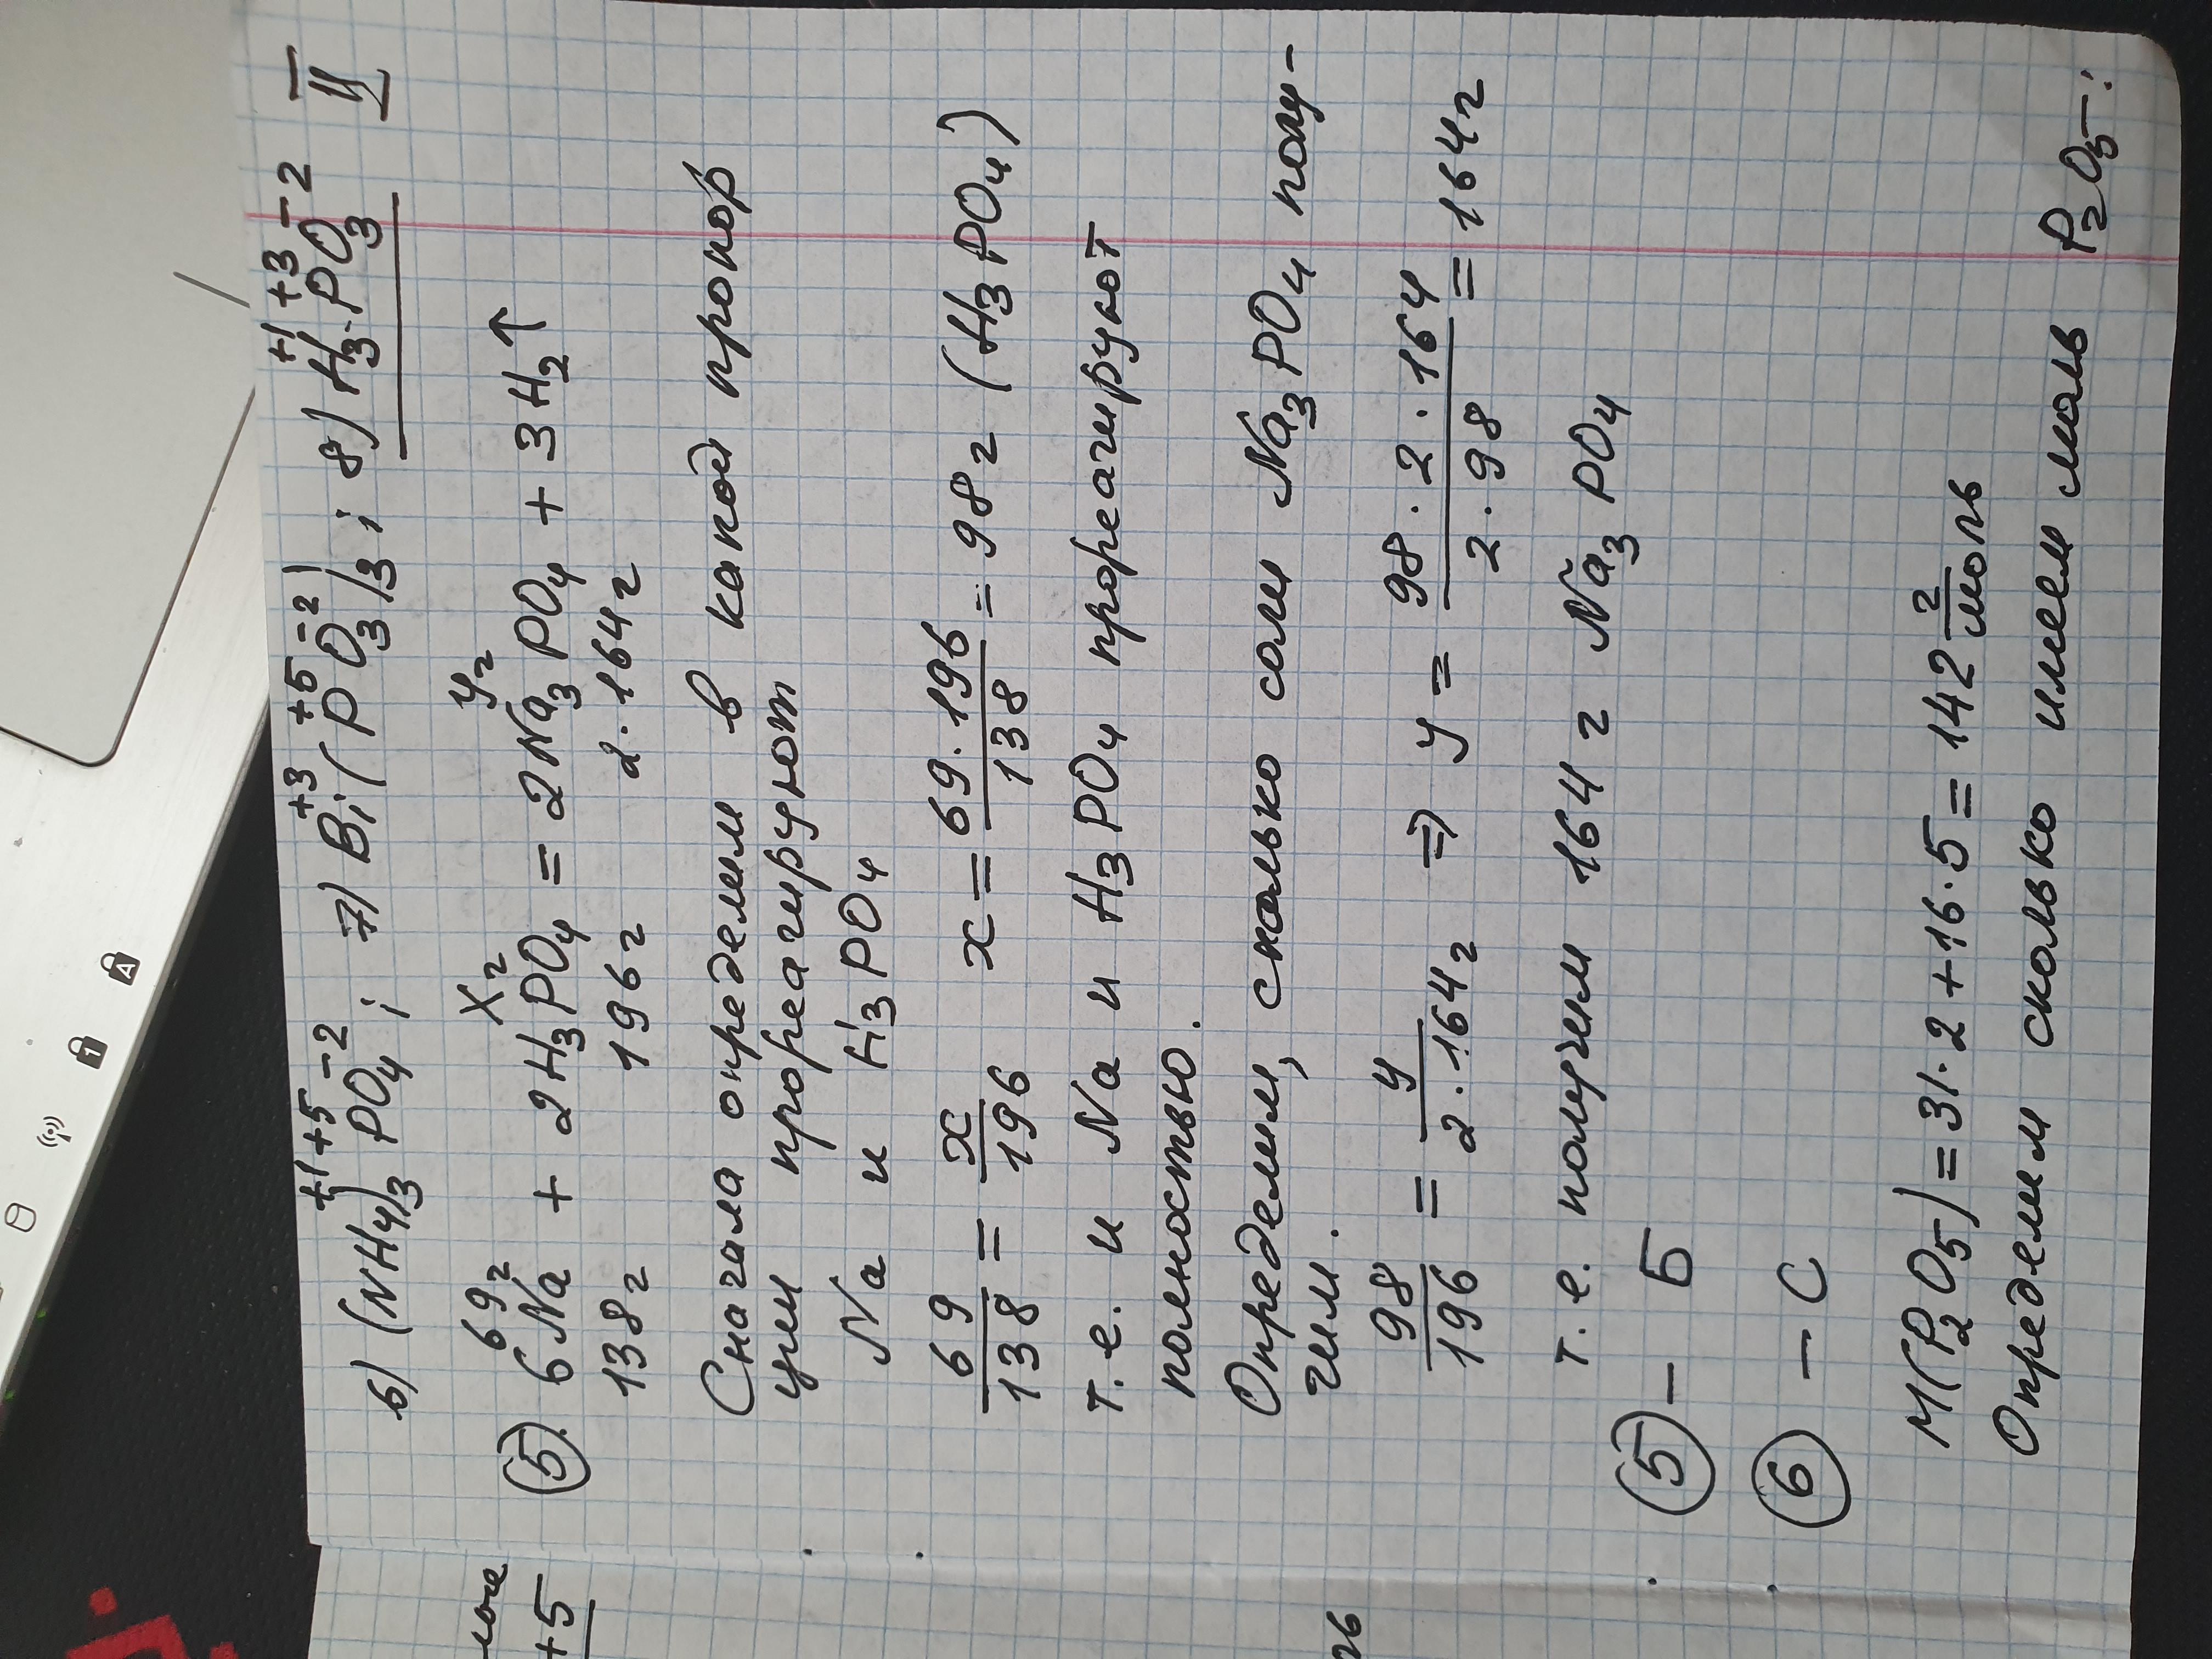 II
6) (NH4)3PO4 ; 7) Bi(PO3)3 ; 8) H3PO3
+1 +5 -2 +3 +5 -2 +1 +3 -2
69г Xг Yг
5. 6Na + 2H3PO4 = 2Na3PO4 + 3H2↑
138г 196г 2·164г
Сначала определим в какой пропор
ции прореагируют
Na и H3PO4
69/138 = x/196 x = 69·196/138 = 98г (H3PO4)
т.е. и Na и H3PO4 прореагируют
полностью.
Определим, сколько соли Na3PO4 полу-
чим.
98/196 = y/2·164г ⇒ y = 98·2·164/2·98 = 164г
т.е. получим 164 г Na3PO4
5 – Б
6 – С
M(P2O5) = 31·2+16·5 = 142 г/моль
Определим сколько имеем моль P2O5-:
+5